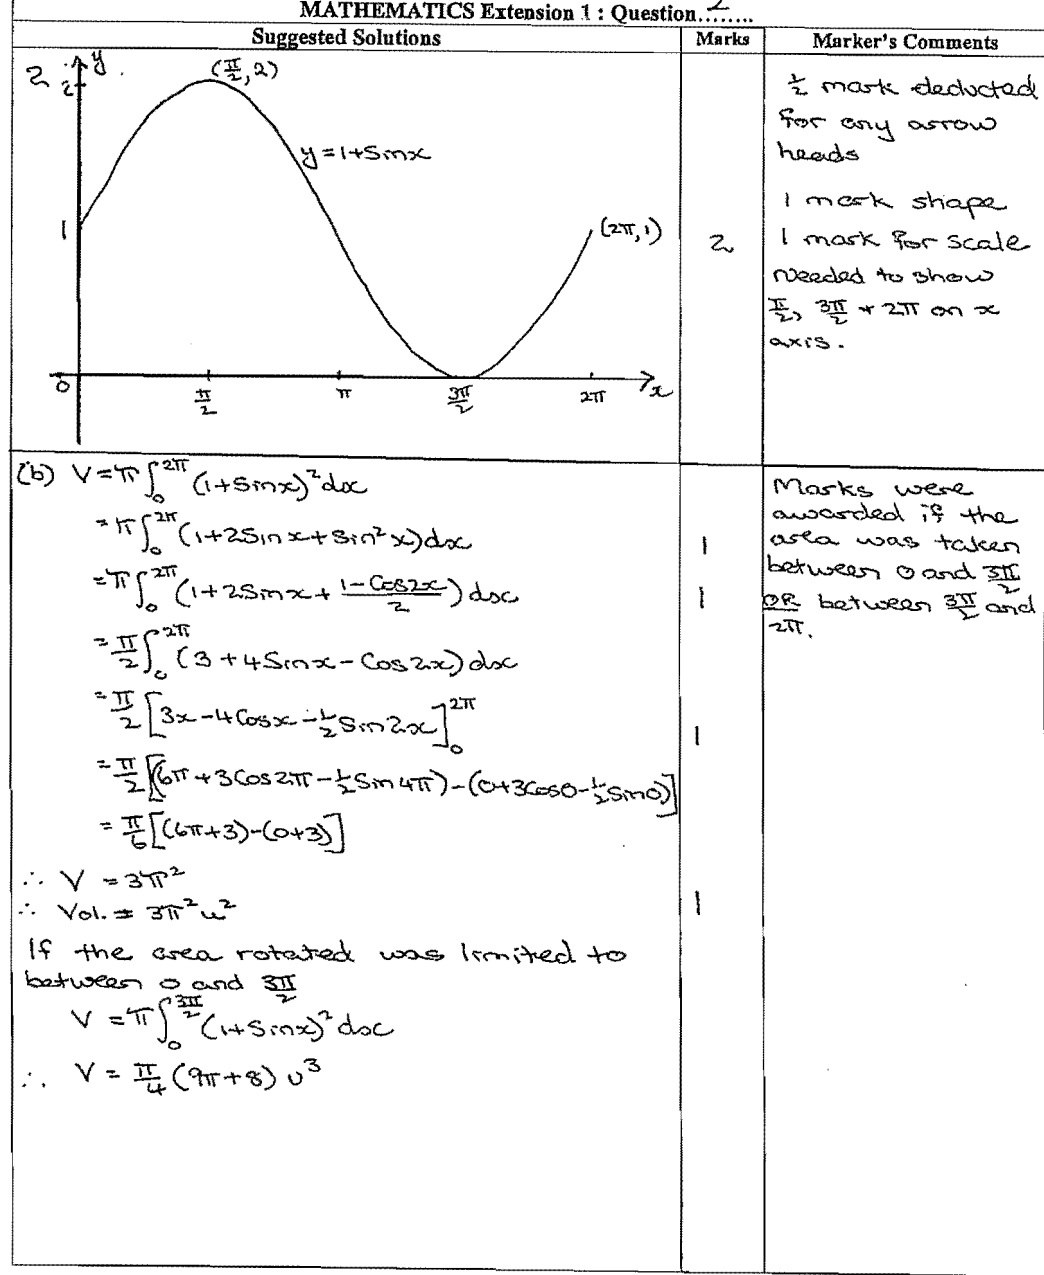 MATHEMATICS Extension 1 : Question...2.....
Suggested Solutions
Marks
Marker's Comments
2
y
2
(π/2, 2)
y = 1+Sinx
1
(2π, 1)
0
π/2
π
3π/2
2π
x
2
½ mark deducted
for any arrow
heads
1 mark shape
1 mark for scale
needed to show
π/2, 3π/2 + 2π on x
axis.
(b) V = π∫₀^2π (1+Sinx)² dx
= π∫₀^2π (1+2Sinx+Sin²x) dx
1
= π∫₀^2π (1+2Sinx + (1-Cos2x)/2) dx
1
= π/2 ∫₀^2π (3 + 4Sinx - Cos2x) dx
= π/2 [3x - 4Cosx - ½Sin2x]₀^2π
1
= π/2 [(6π + 3Cos2π - ½Sin4π) - (0+3Cos0 - ½Sin0)]
= π/6 [(6π+3)-(0+3)]
∴ V = 3π²
∴ Vol. = 3π² u²
1
If the area rotated was limited to
between 0 and 3π/2
V = π∫₀^3π/2 (1+Sinx)² dx
∴ V = π/4 (9π+8) u³
Marks were
awarded if the
area was taken
between 0 and 3π/2
OR between 3π/2 and
2π.